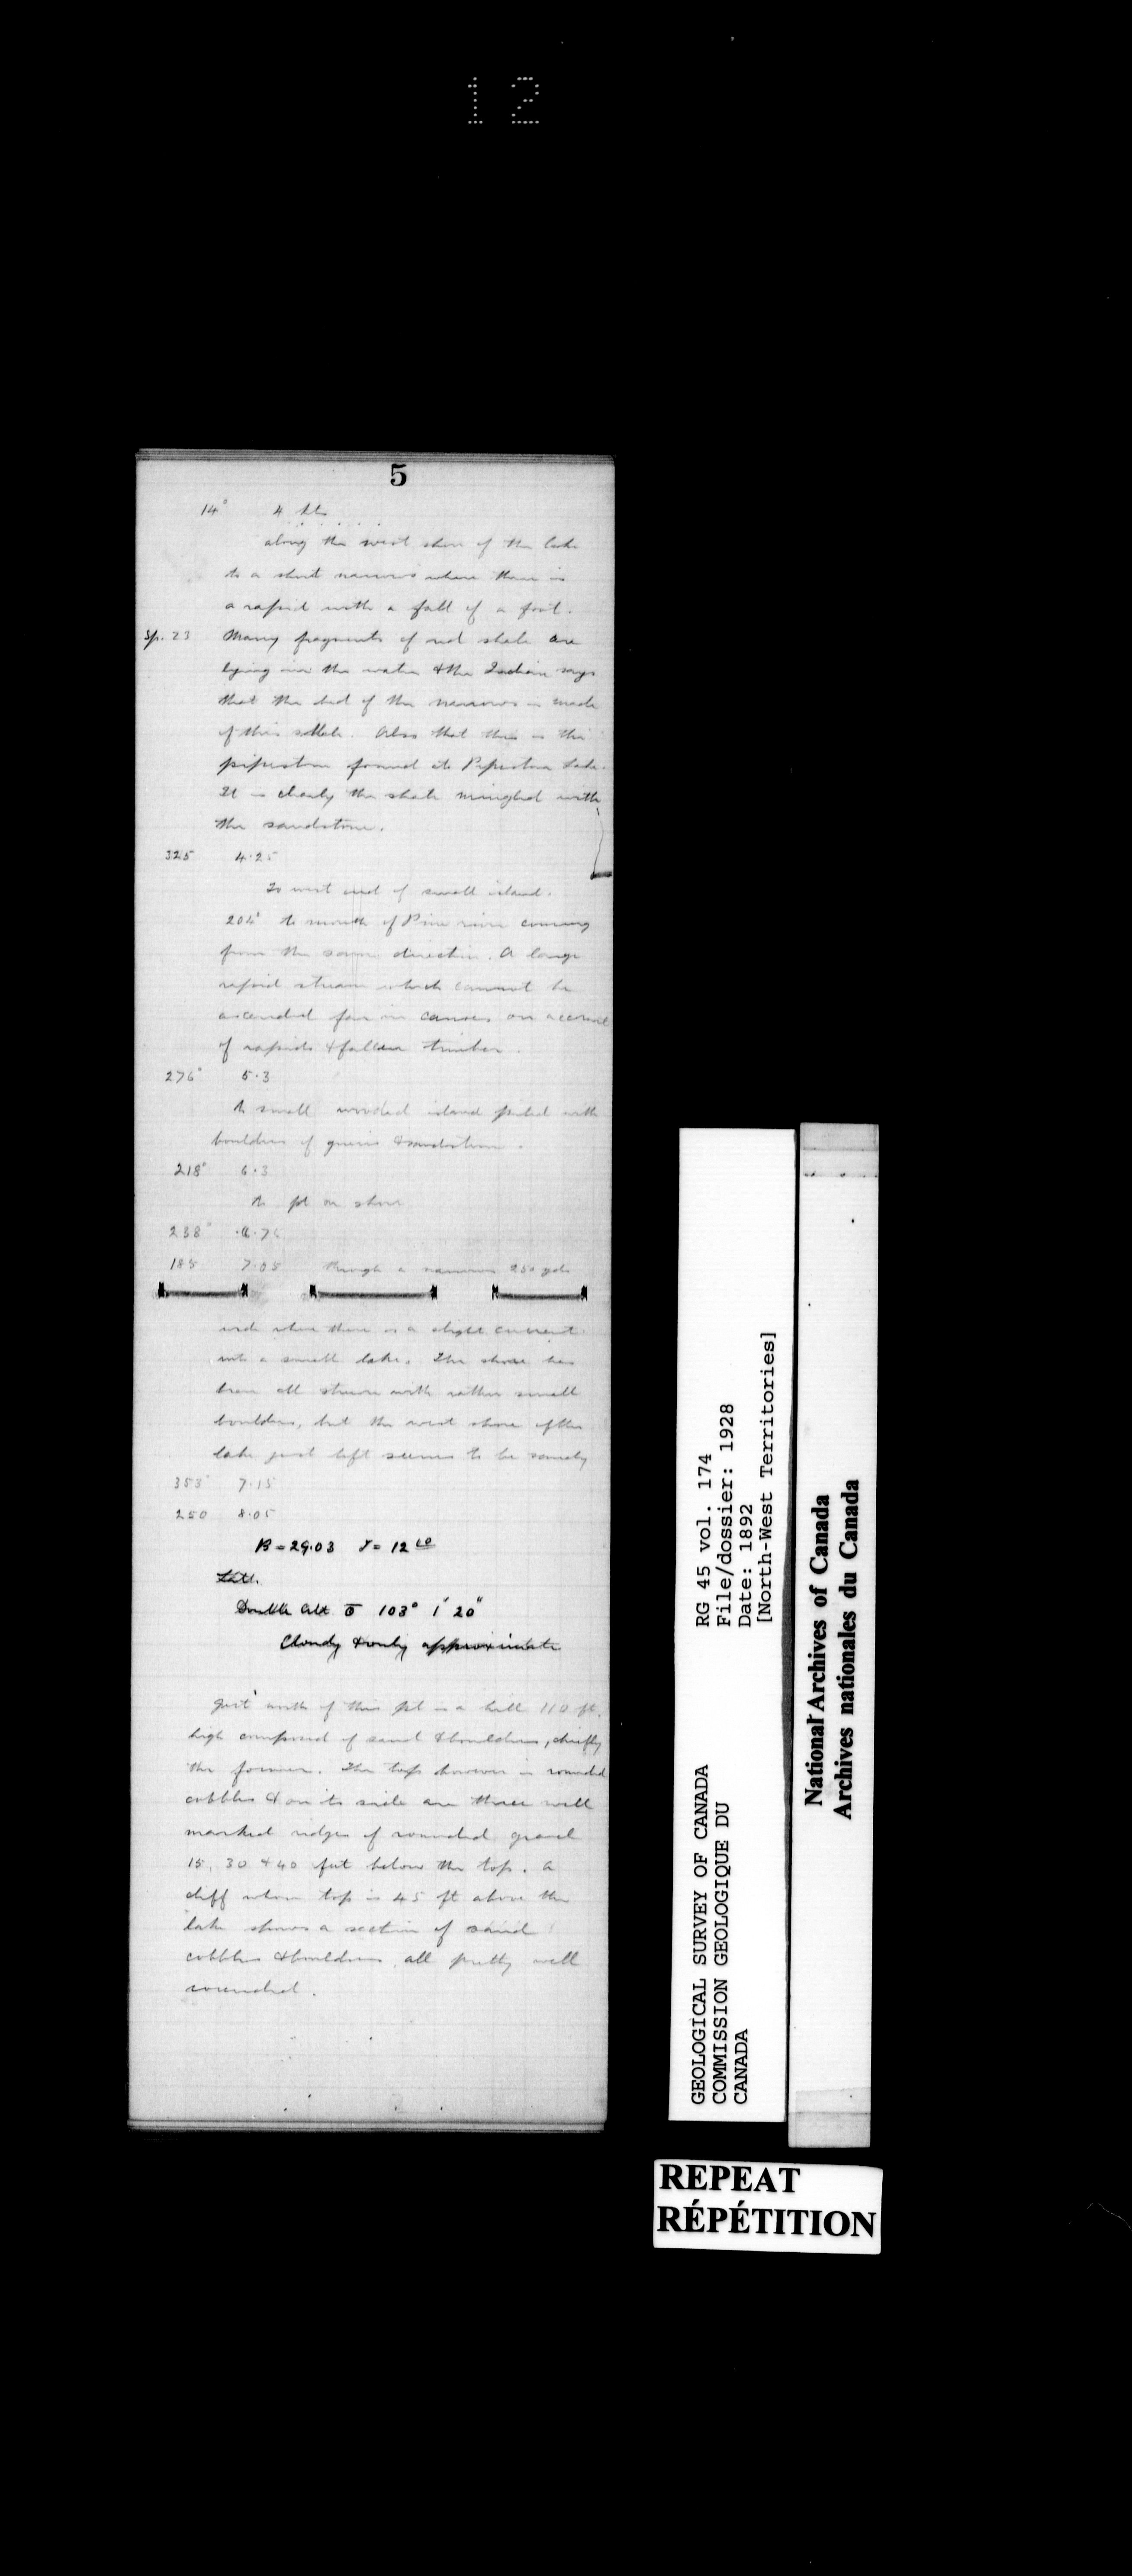 12
5
14° 4
along the west shore of the lake
to a short narrows where there is
a rapid with a fall of a foot.
Sp. 23 Many fragments of red shale are
lying in the water & the Indian says
that the bed of the narrows is made
of this shale. Also that this is the
pipestone found at Pipestone Lake.
It is clearly the shale mingled with
the sandstone.
325 4.25
To west end of small island.
204° to mouth of Pine river coming
from the same direction. A large
rapid stream which cannot be
ascended far in canoes on account
of rapids & fallen timber.
276° 5.3
to small wooded island piled with
boulders of gneiss & sandstone.
218° 6.3
to pt on shore
238° 6.75
185 7.05 through a narrows 250 yds
wide where there is a slight current
into a small lake. The shore has
been all strewn with rather small
boulders, but the west shore of the
lake just left seems to be sandy
353° 7.15
250 8.05
B = 29.03 T = 12
Latt.
Double Alt 103° 1' 20"
Cloudy & only approximate
Just north of this pt is a hill 110 ft.
high composed of sand & boulders, chiefly
the former. The top however is rounded
cobbles & on its side are three well
marked ridges of rounded gravel
15, 30 & 40 feet below the top. A
cliff whose top is 45 ft above the
lake shows a section of sand
cobbles & boulders, all pretty well
rounded.
GEOLOGICAL SURVEY OF CANADA RG 45 vol. 174
COMMISSION GEOLOGIQUE DU File/dossier: 1928
CANADA Date: 1892
[North-West Territories]
National Archives of Canada
Archives nationales du Canada
REPEAT
RÉPÉTITION